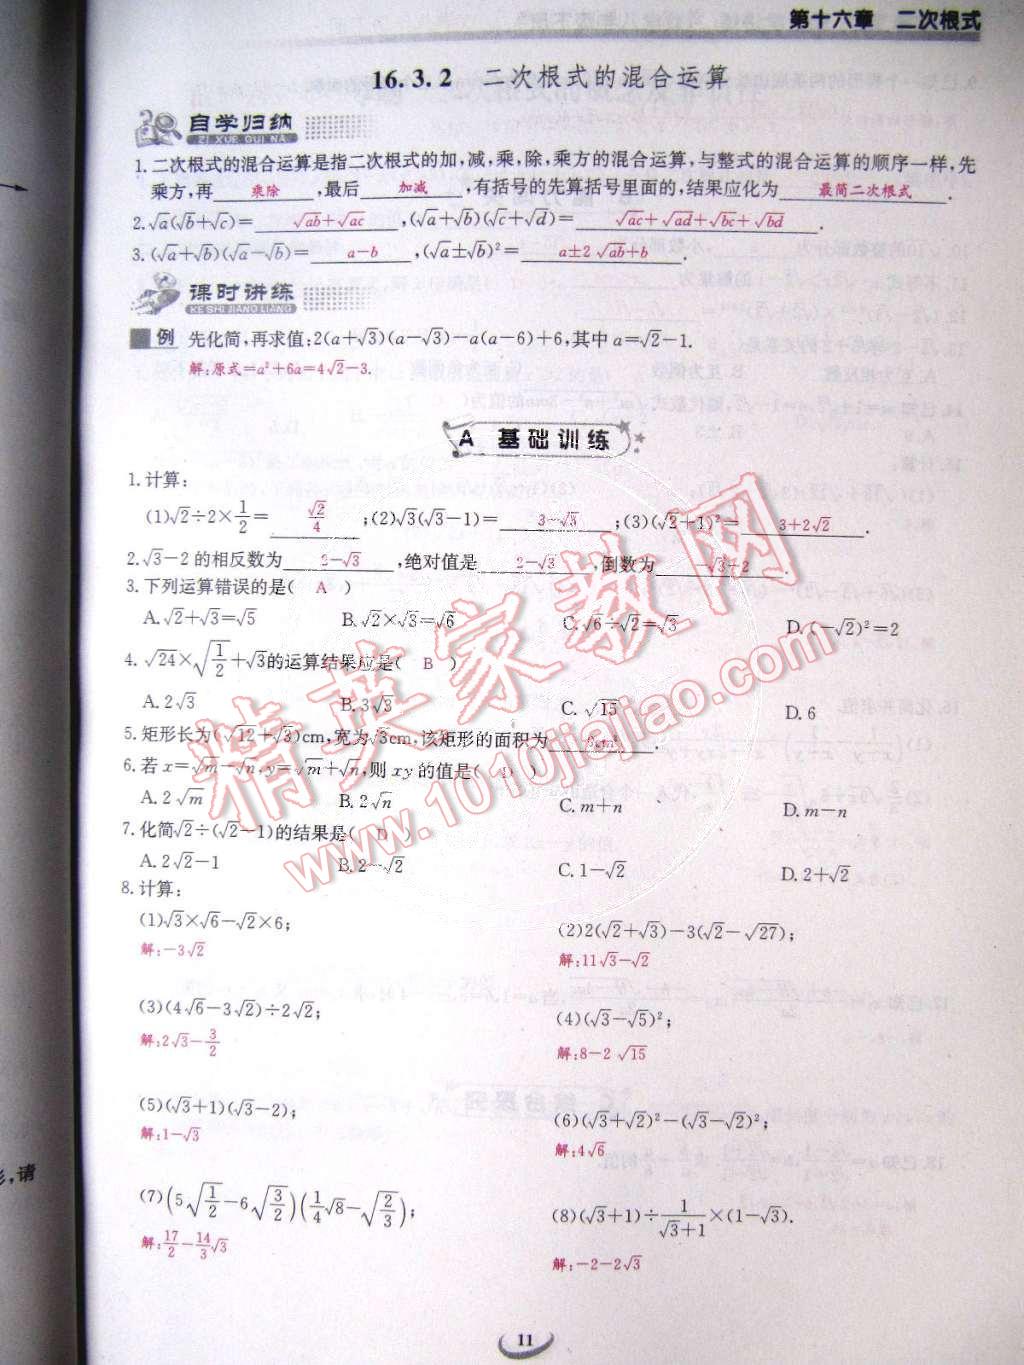 第十六章 二次根式
16.3.2 二次根式的混合运算
自学归纳
ZI XUE GUI NA
1.二次根式的混合运算是指二次根式的加,减,乘,除,乘方的混合运算,与整式的混合运算的顺序一样,先
乘方,再 乘除 ,最后 加减 ,有括号的先算括号里面的,结果应化为 最简二次根式 .
2.√a(√b+√c)= √ab+√ac ,(√a+√b)(√c+√d)= √ac+√ad+√bc+√bd .
3.(√a+√b)(√a-√b)= a-b ,(√a±√b)²= a±2√ab+b .
课时讲练
KE SHI JIANG LIANG
例 先化简,再求值:2(a+√3)(a-√3)-a(a-6)+6,其中a=√2-1.
解:原式=a²+6a=4√2-3.
A 基础训练
1.计算:
(1)√2÷2×1/2= √2/4 ;(2)√3(√3-1)= 3-√3 ;(3)(√2+1)²= 3+2√2 .
2.√3-2的相反数为 2-√3 ,绝对值是 2-√3 ,倒数为 -√3-2 .
3.下列运算错误的是( A )
A.√2+√3=√5 B.√2×√3=√6 C.√6÷√2=√3 D.(-√2)²=2
4.√24×√(1/2)+√3的运算结果应是( B )
A.2√3 B.3√3 C.√15 D.6
5.矩形长为(√12+√3)cm,宽为√3cm,该矩形的面积为 9cm² .
6.若x=√m-√n,y=√m+√n,则xy的值是( D )
A.2√m B.2√n C.m+n D.m-n
7.化简√2÷(√2-1)的结果是( D )
A.2√2-1 B.2-√2 C.1-√2 D.2+√2
8.计算:
(1)√3×√6-√2×6; (2)2(√2+√3)-3(√2-√27);
解:-3√2 解:11√3-√2
(3)(4√6-3√2)÷2√2; (4)(√3-√5)²;
解:2√3-3/2 解:8-2√15
(5)(√3+1)(√3-2); (6)(√3+√2)²-(√3-√2)²;
解:1-√3 解:4√6
(7)(5√(1/2)-6√(3/2))(1/4√8-√(2/3)); (8)(√3+1)÷1/(√3+1)×(1-√3).
解:17/2-14/3√3 解:-2-2√3
,请
11
精英家教网
www.1010jiajiao.com